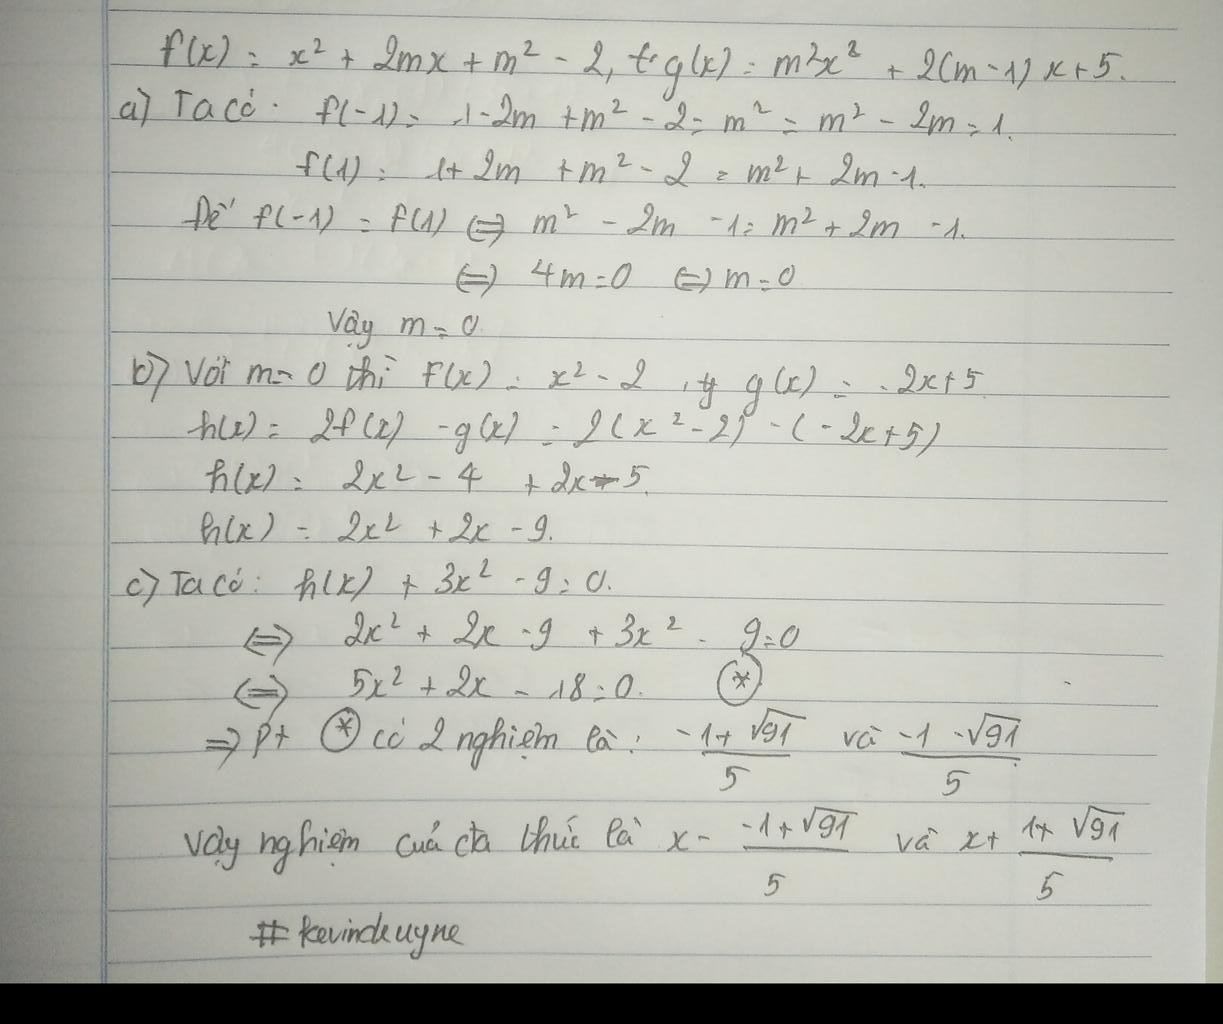 f(x) = x² + 2mx + m² - 2, g(x) = m²x² + 2(m-1)x+5.
a) Ta có. f(-1) = 1-2m +m² - 2 = m² = m² - 2m = 1.
f(1) = 1+ 2m +m² - 2 = m² + 2m -1.
Để f(-1) = f(1) ⇔ m² - 2m -1 = m² + 2m -1.
⇔ 4m = 0 ⇔ m = 0
Vậy m = 0
b) Với m = 0 thì f(x) = x² - 2, g(x) = -2x+5
h(x) = 2f(x) - g(x) = 2(x² - 2) - (-2x+5)
h(x) = 2x² - 4 + 2x - 5.
h(x) = 2x² + 2x - 9.
c) Ta có: h(x) + 3x² - 9 = 0.
⇔ 2x² + 2x - 9 + 3x² - 9 = 0
⇔ 5x² + 2x - 18 = 0. (*)
⇒ pt (*) có 2 nghiệm là: (-1+√91)/5 và (-1-√91)/5
Vậy nghiệm của đa thức là x - (-1+√91)/5 và x + (1+√91)/5